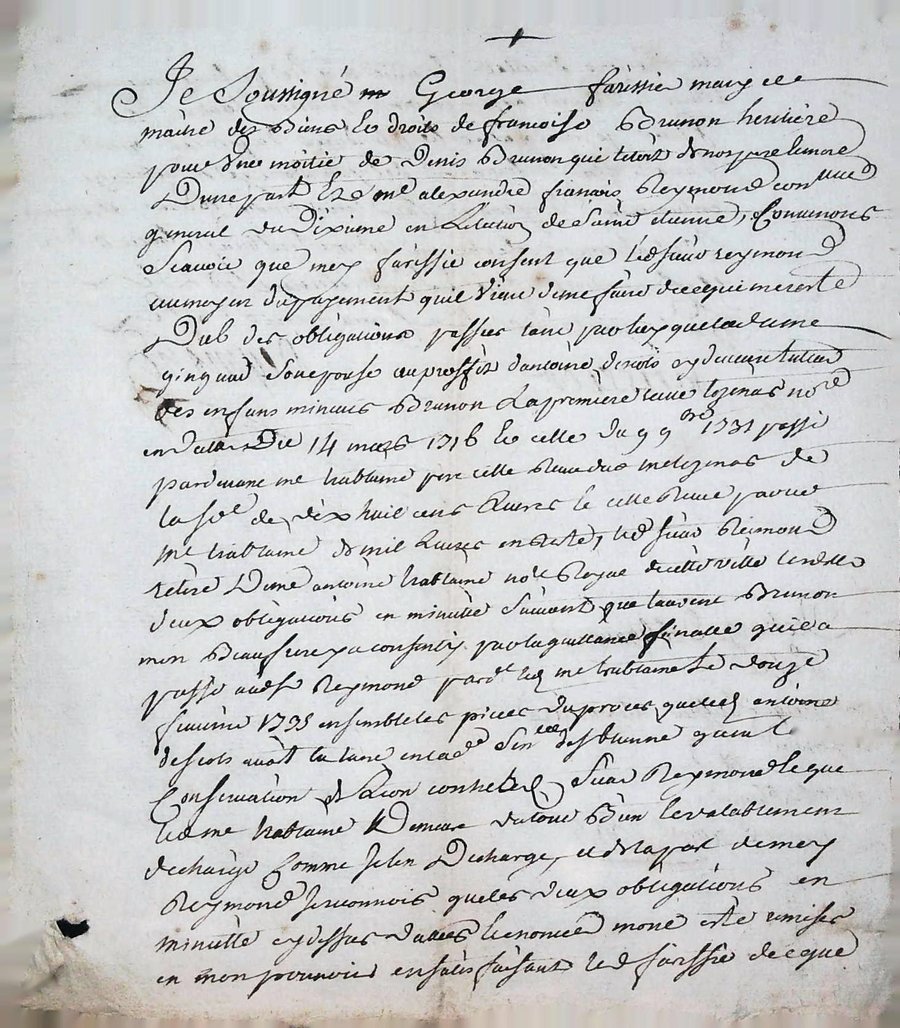 Je Soussigné George farissier mary et
maitre des Biens et droits de francoise Brunon heritiere
pour une moitié de Denis Brunon qui letoit de nos pere et mere
D'une part Et me alexandre francois Reymond
general du Dixieme en L'élection de Saint etienne, Convenons
Scavoir que moy farissié consent que led sieur reymond
au moyen du payement quil vient de me faire de ce qui me reste
Dub des obligations passées tant par luy que la dame
ginquad Son epouse au proffit dantoine descots cy devant tuteur
des enfans mineurs Brunon La premiere receue no.re
en datte Du 14 mars 1716 et celle du 9 9bre 1731 passé
pardevant me trablaine pour celle Receue dud me de
la so.e de dix huit cens Livres et celle Receue par led
me trablaine de mil Livres en reste, led sieur Reimond
retire Dud me antoine trablaine no.re Royal de cette ville lesdittes
deux obligations en minutte Suivant que laurent Brunon
mon Beaufrere y a consenty par la quittance finalle quil a
passé aud sr Reymond pard.t led me trablaine Le douze
fevrier 1735 ensemble les pieces du procès que led antoine
descots avoit en
Conservation de Lion contre led Sieur Reymond et que
led me trablaine Demeure du tout Bien et valablement
dechargé Comme je len Decharge, et de la part de moy
Reymond je reconnois que les deux obligations en
minutte cy dessus dattées et enoncées mont eté remises
en mon pouvoir en satisfaisant led farissié de ce que